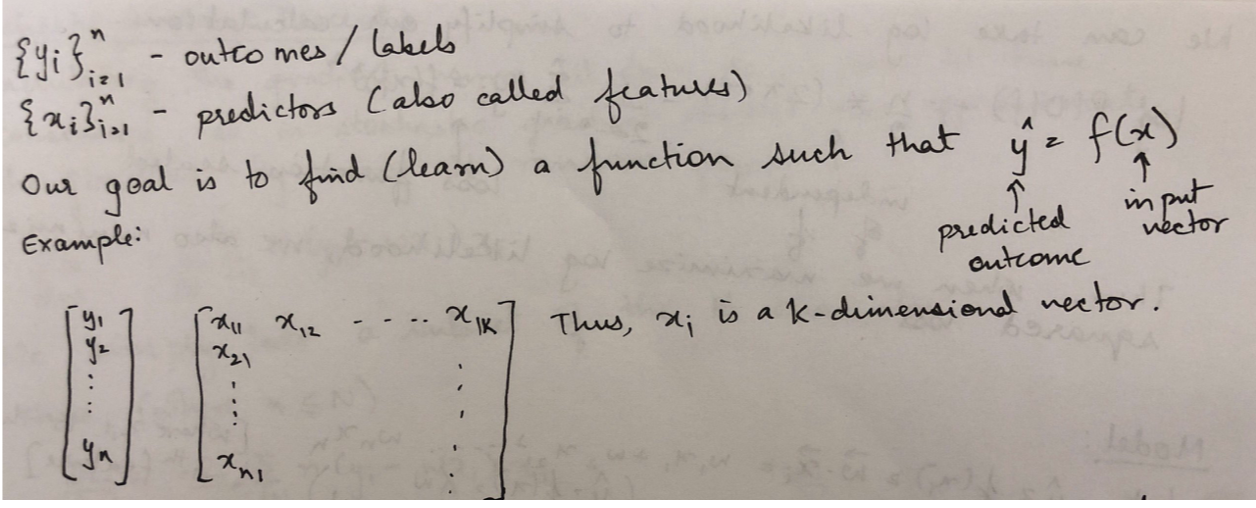 {yᵢ}ⁿᵢ₌₁ - outcomes / labels
{xᵢ}ⁿᵢ₌₁ - predictors (also called features)
Our goal is to find (learn) a function such that ŷ = f(x)
↑ predicted outcome
↑ input vector
Example:
[y₁ y₂ ⋮ yₙ] [x₁₁ x₁₂ ----.. x₁ₖ
x₂₁ ⋮
⋮ ⋮
xₙ₁ ⋮] Thus, xᵢ is a k-dimensional vector.
Model